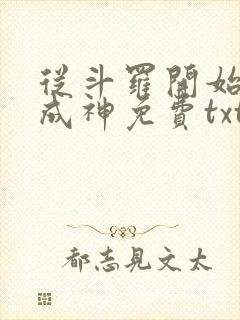 從斗羅開始
成神免費txt
都志見文太